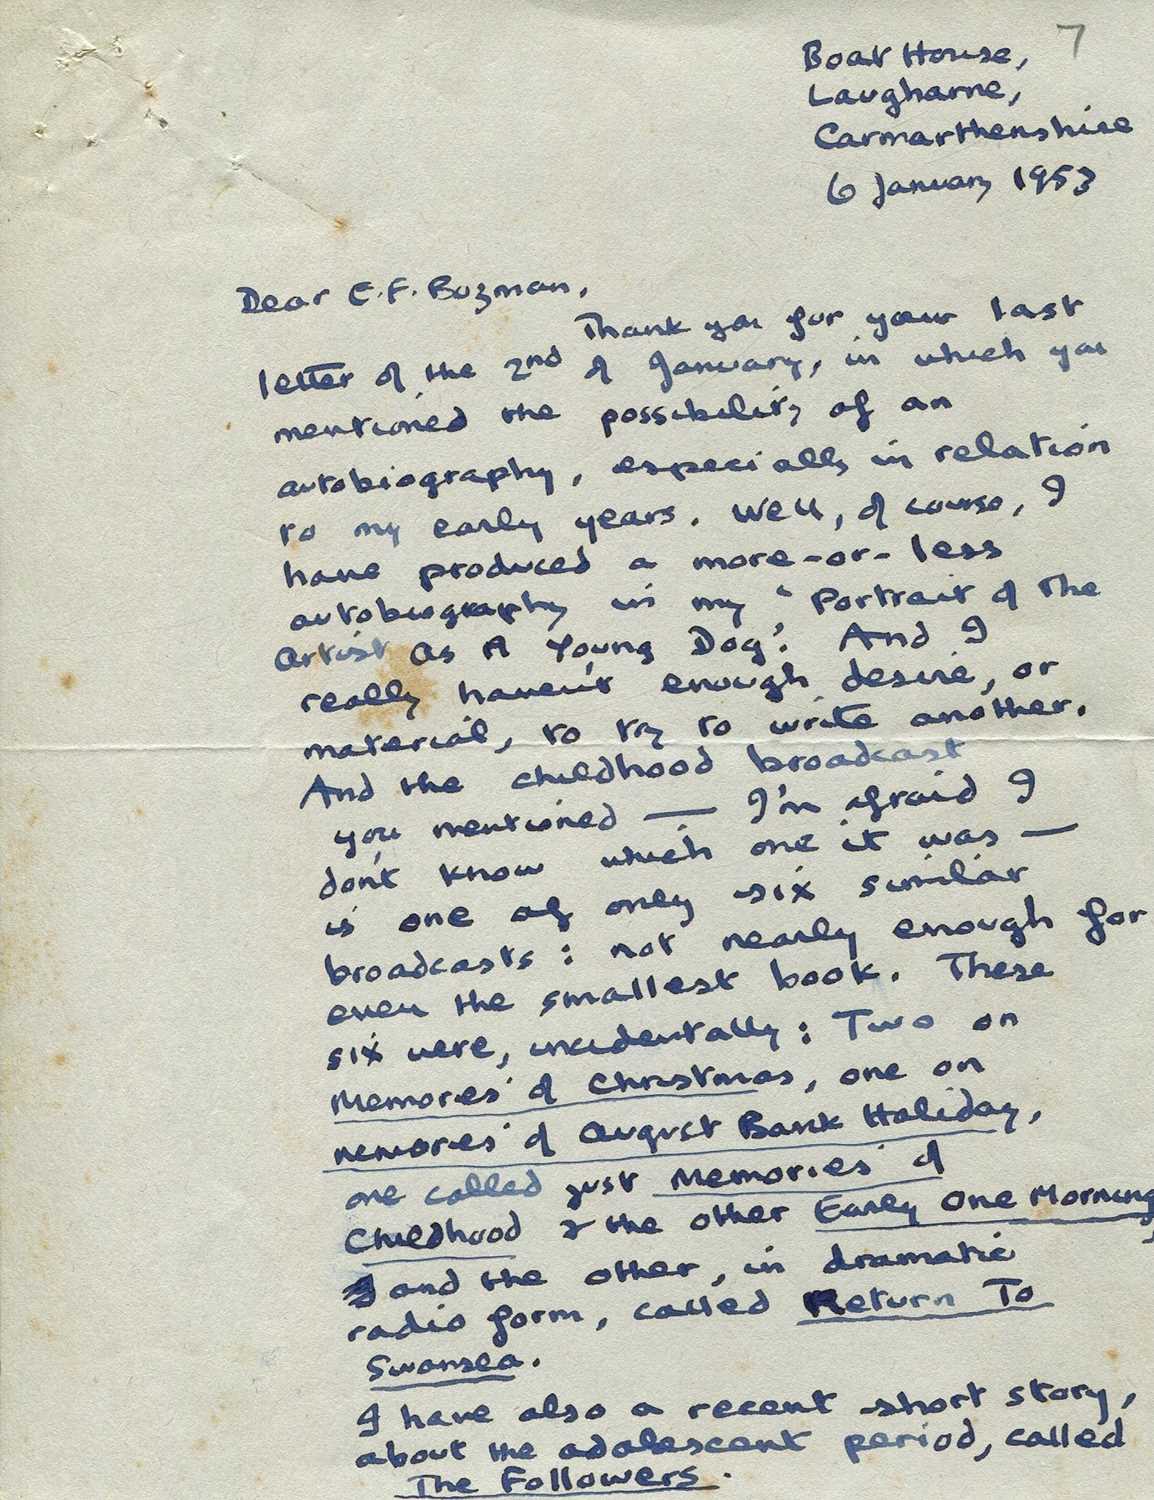 7
Boat House,
Laugharne,
Carmarthenshire
6 January 1953
Dear E.F. Bozman,
Thank you for your last
letter of the 2nd of January, in which you
mentioned the possibility of an
autobiography, especially in relation
to my early years. Well, of course, I
have produced a more-or-less
autobiography in my 'Portrait of The
Artist As A Young Dog'. And I
really haven't enough desire, or
material, to try to write another.
And the childhood broadcast
you mentioned — I'm afraid I
don't know which one it was —
is one of only six similar
broadcasts: not nearly enough for
even the smallest book. These
six were, incidentally: Two on
Memories of Christmas, one on
memories of August Bank Holiday,
one called just Memories of
Childhood & the other Early One Morning,
and the other, in dramatic
radio form, called Return To
Swansea.
I have also a recent short story,
about the adolescent period, called
The Followers.